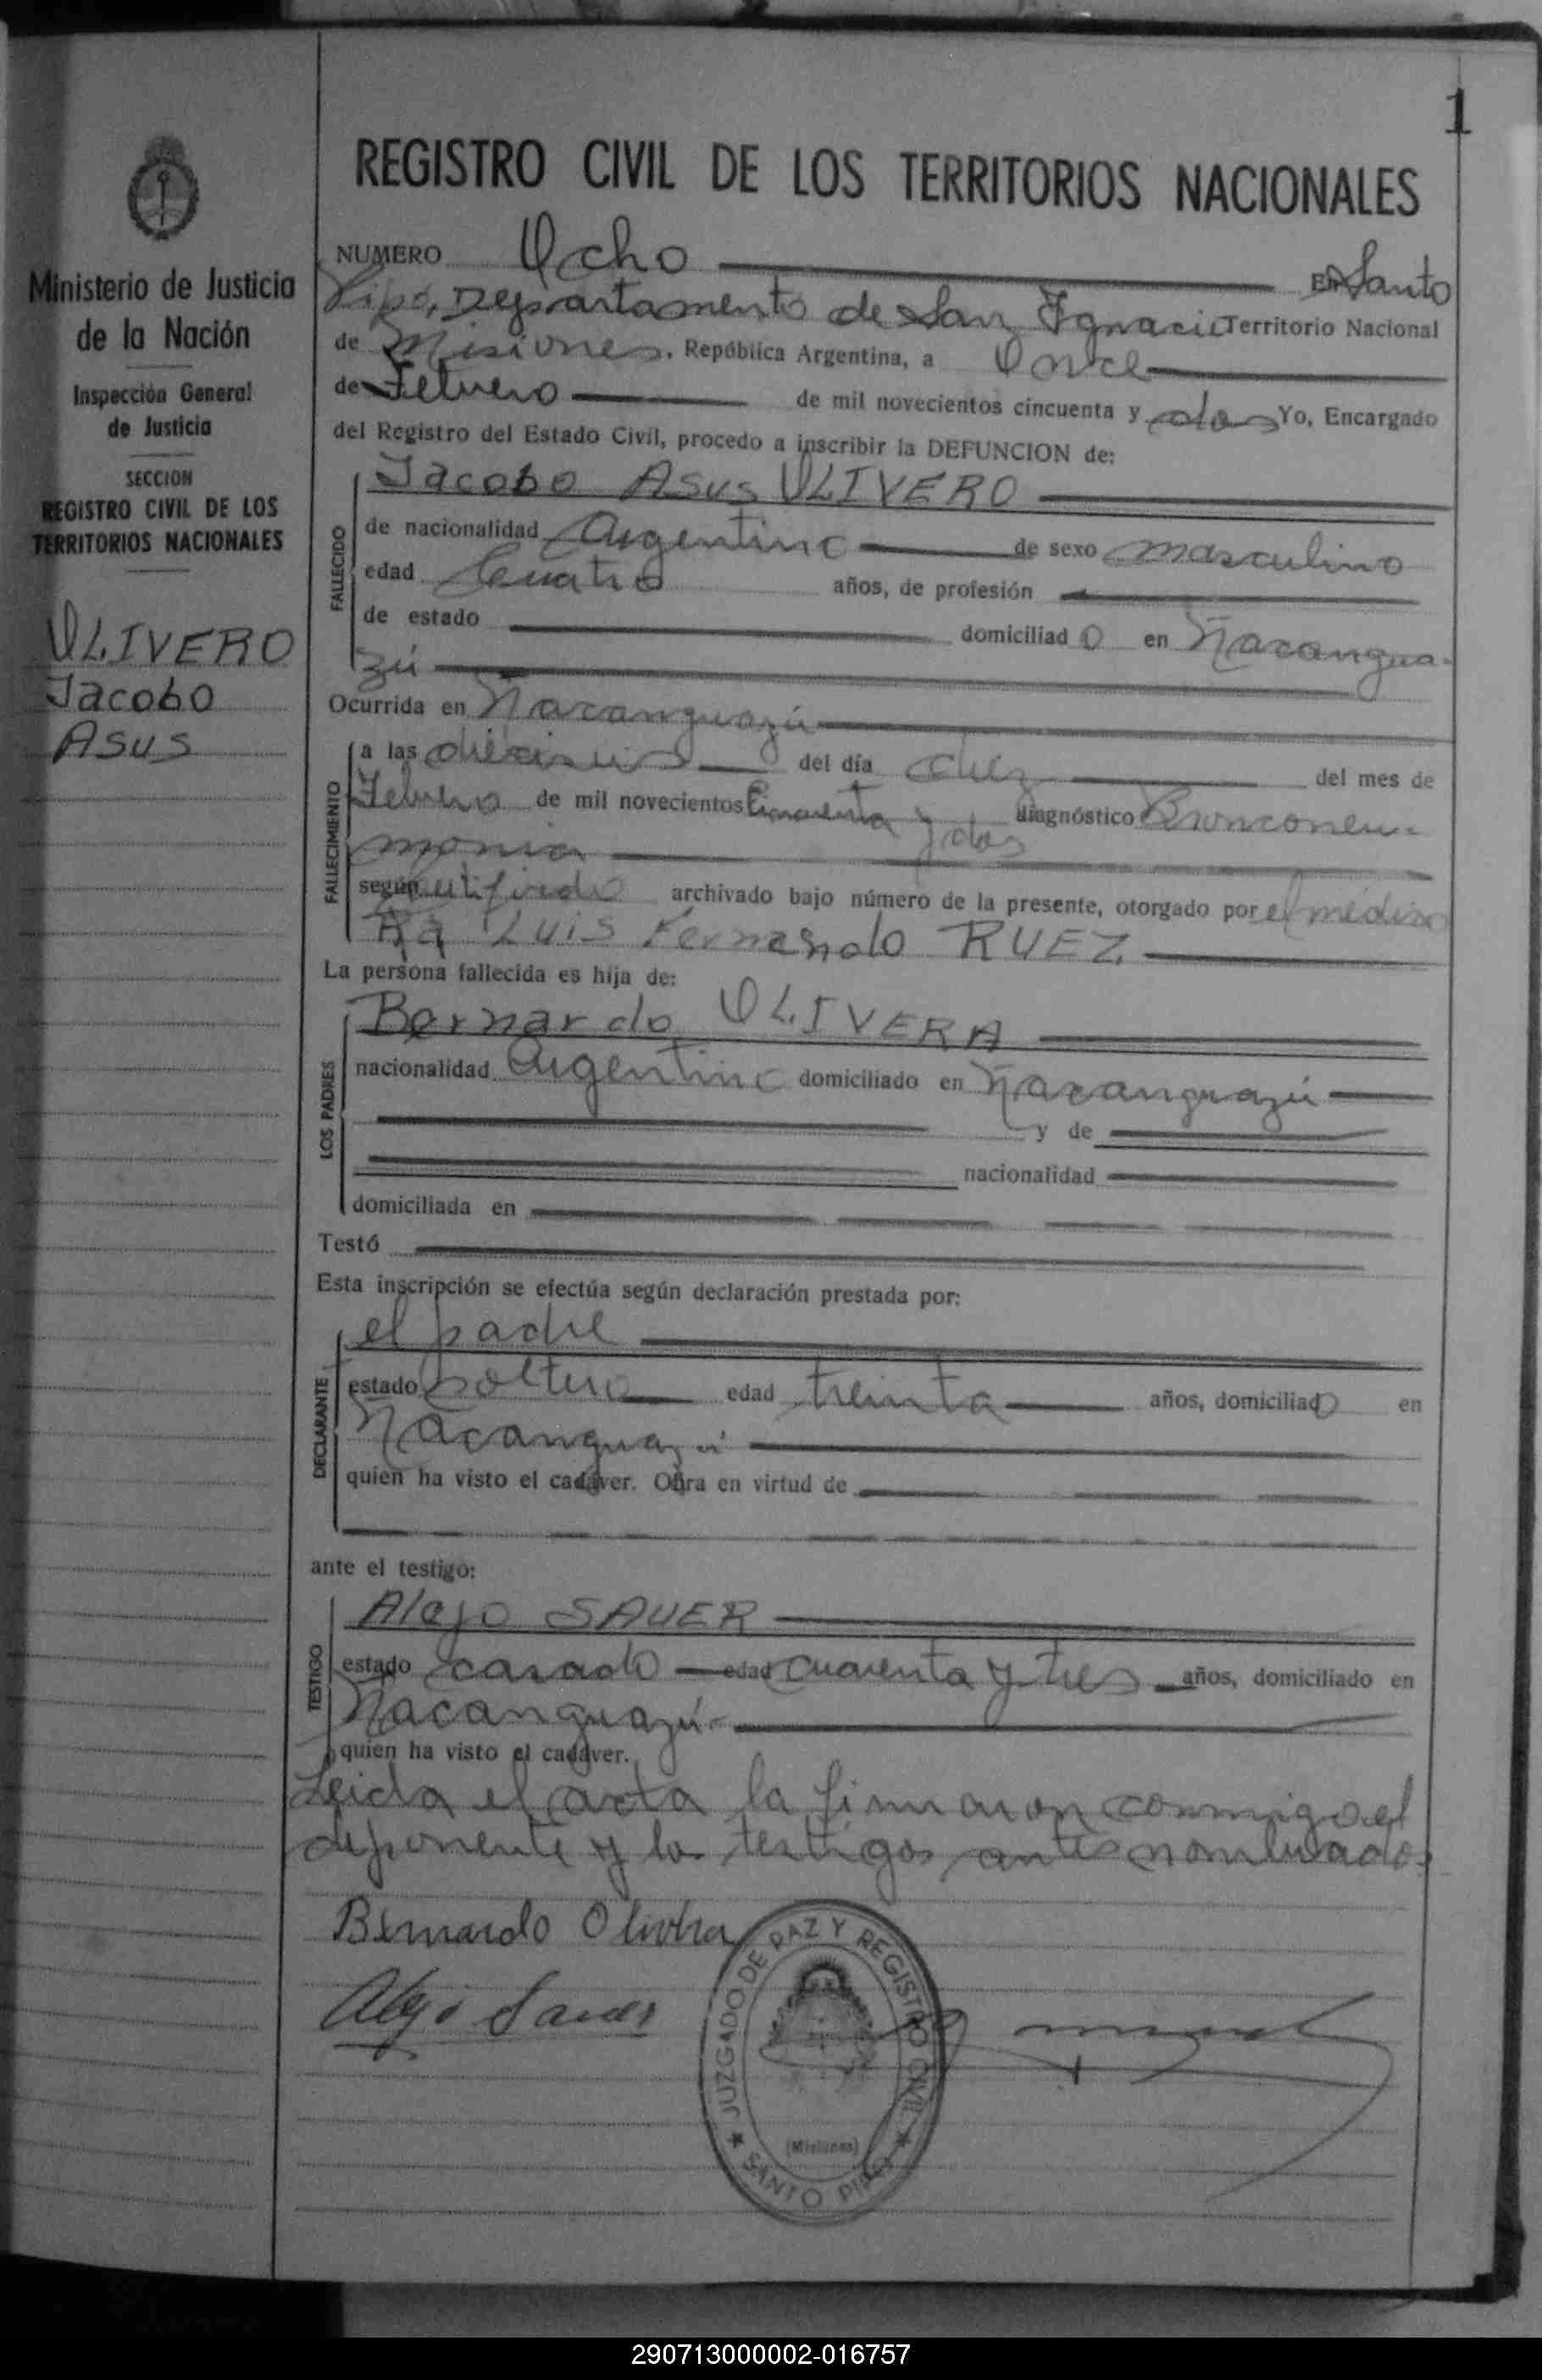 1
REGISTRO CIVIL DE LOS TERRITORIOS NACIONALES
Ministerio de Justicia
de la Nación
Inspección General
de Justicia
SECCION
REGISTRO CIVIL DE LOS
TERRITORIOS NACIONALES
OLIVERO
Jacobo
Asus
NUMERO Ocho En Santo
Pipó, Departamento de San Ignacio Territorio Nacional
de Misiones, República Argentina, a Once
de Febrero de mil novecientos cincuenta y dos Yo, Encargado
del Registro del Estado Civil, procedo a inscribir la DEFUNCION de:
Jacobo Asus OLIVERO
FALLECIDO
de nacionalidad Argentino de sexo masculino
edad Cuatro años, de profesión
de estado domiciliado en Ñacangua-
zú
Ocurrida en Ñacanguazú
FALLECIMIENTO
a las dieciseis del día diez del mes de
Febrero de mil novecientos Cincuenta y dos diagnóstico Bronconeu-
monia
según certificado archivado bajo número de la presente, otorgado por el médico
Luis Fernando RUEZ
La persona fallecida es hija de:
LOS PADRES
Bernardo OLIVERA
nacionalidad Argentino domiciliado en Ñacanguazú
y de
nacionalidad
domiciliada en
Testó
Esta inscripción se efectúa según declaración prestada por:
DECLARANTE
el padre
estado soltero edad treinta años, domiciliado en
Ñacanguazú
quien ha visto el cadáver. Obra en virtud de
ante el testigo:
TESTIGO
Alejo SAUER
estado casado edad cuarenta y tres años, domiciliado en
Ñacanguazú
quien ha visto el cadáver.
Leida el acta la firmaron conmigo el
deponente y los testigos antes nombrados
Bernardo Olivera
Alejo Sauer
JUZGADO DE PAZ Y REGISTRO CIVIL
(Misiones)
SANTO PIPO
290713000002-016757